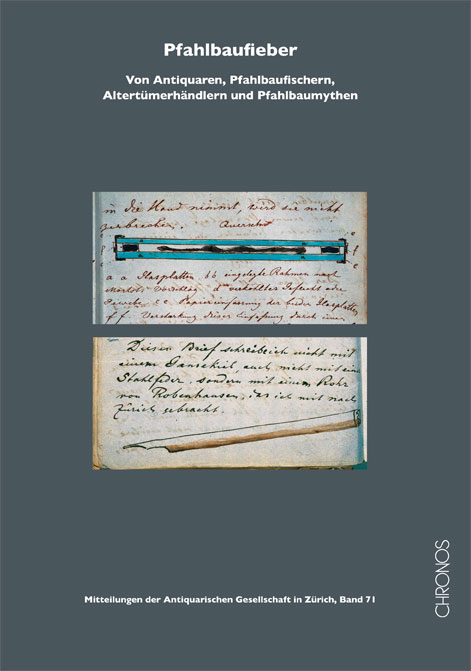 Pfahlbaufieber
Von Antiquaren, Pfahlbaufischern,
Altertümerhändlern und Pfahlbaumythen
in die Hand nimmt, wird sie nicht
zerbrechen. Querschnitt
a a Glasplatten b b eingelegte Rahmen nach
Pfahlbau
f f Verstärkung dieser Einfassung durch einen
Diesen Brief schreibe ich nicht mit
einem Gansekiel, auch nicht mit ein
Stahlfeder, sondern mit einem Rohr
von Robenhausen, das ich mit nach
Zürich gebracht.
CHRONOS
Mitteilungen der Antiquarischen Gesellschaft in Zürich, Band 71